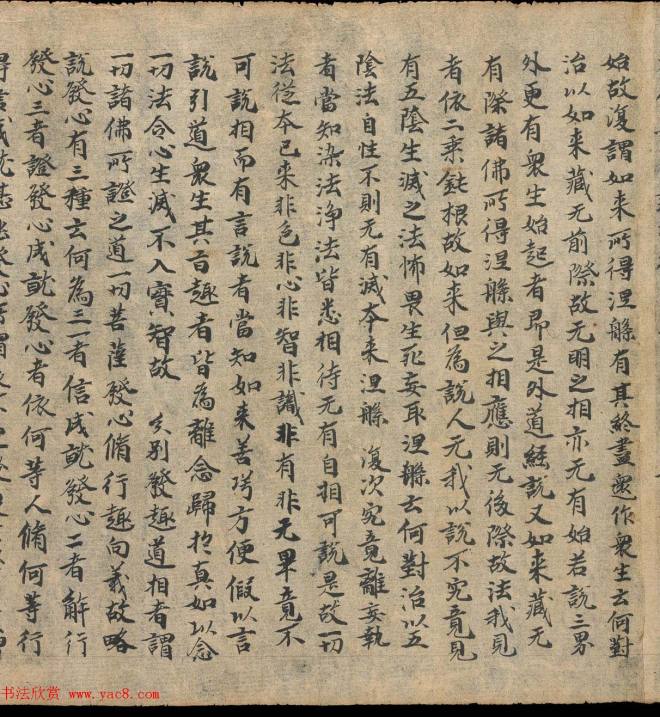 始故復謂如来所得涅槃有其終盡還作衆生云何對
治以如来藏无前際故无明之相亦无有始若說三界
外更有衆生始起者即是外道經說又如来藏无
有際諸佛所得涅槃與之相應則无後際故法我見
者依二乘鈍根故如来但為說人无我以說不究竟見
有五陰生滅之法怖畏生死妄取涅槃云何對治以五
陰法自性不則无有滅本来涅槃 復次究竟離妄執
者當知染法淨法皆悉相待无有自相可說是故一切
法從本已来非色非心非智非識非有非无畢竟不
可說相而有言說者當知如来善巧方便假以言
說引道衆生其旨趣者皆為離念歸於真如以念
一切法令心生滅不入實智故 分別發趣道相者謂
一切諸佛所證之道一切菩薩發心脩行趣向義故略
說發心有三種云何為三一者信成就發心二者解行
發心三者證發心成就發心者依何等人脩何等行
书法欣赏 www.yac8.com